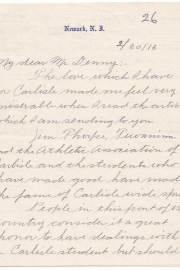 26
Newark, N. J.
2/20/12
My dear Mr. Denny:
The love which I have
for Carlisle made me feel very
miserable when I read the article
which I am sending to you.
Jim Thorpe, Tewanima
and the Athletic Association of
Carlisle and the students who
have made good have made
the fame of Carlisle wide spread
People in this part of the
country consider it a great
honor to have dealings with
a Carlisle student but should